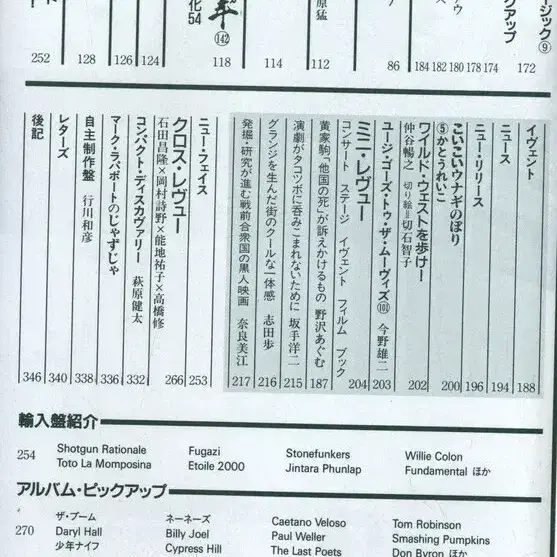 ージック⑨
ックアップ
172
174
178
180
182
184
86
112
114
118
124
126
128
252
原猛
年
化54
142
イヴェント 188
ニュース 194
ニュー・リリース 196
こいこいウナギのぼり
⑤かとうれいこ 200
ワイルド・ウェストを歩け!
仲谷暢之 切り絵=切石智子 202
ユージ・ゴーズ・トゥ・ザ・ムーヴィズ 101 今野雄二 203
ミニ・レヴュー
コンサート ステージ イヴェント フィルム ブック 204
黄家駒「他国の死」が訴えかけるもの 野沢あぐむ 187
演劇がタコツボに呑みこまれないために 坂手洋二 215
グランジを生んだ街のクールな一体感 志田歩 216
発掘・研究が進む戦前合衆国の黒人映画 奈良美江 217
ニュー・フェイス 253
クロス・レヴュー
石田昌隆×岡村詩野×能地祐子×高橋修 266
コンパクト・ディスカヴァリー 萩原健太 332
マーク・ラパポートのじゃずじゃ 336
自主制作盤 行川和彦 338
レターズ 340
後記 346
輸入盤紹介
254
Shotgun Rationale
Fugazi
Stonefunkers
Willie Colon
Toto La Momposina
Etoile 2000
Jintara Phunlap
Fundamental ほか
アルバム・ピックアップ
270
ザ・ブーム
ネーネーズ
Caetano Veloso
Tom Robinson
Daryl Hall
Billy Joel
Paul Weller
Smashing Pumpkins
少年ナイフ
Cypress Hill
The Last Poets
Don Byron ほか